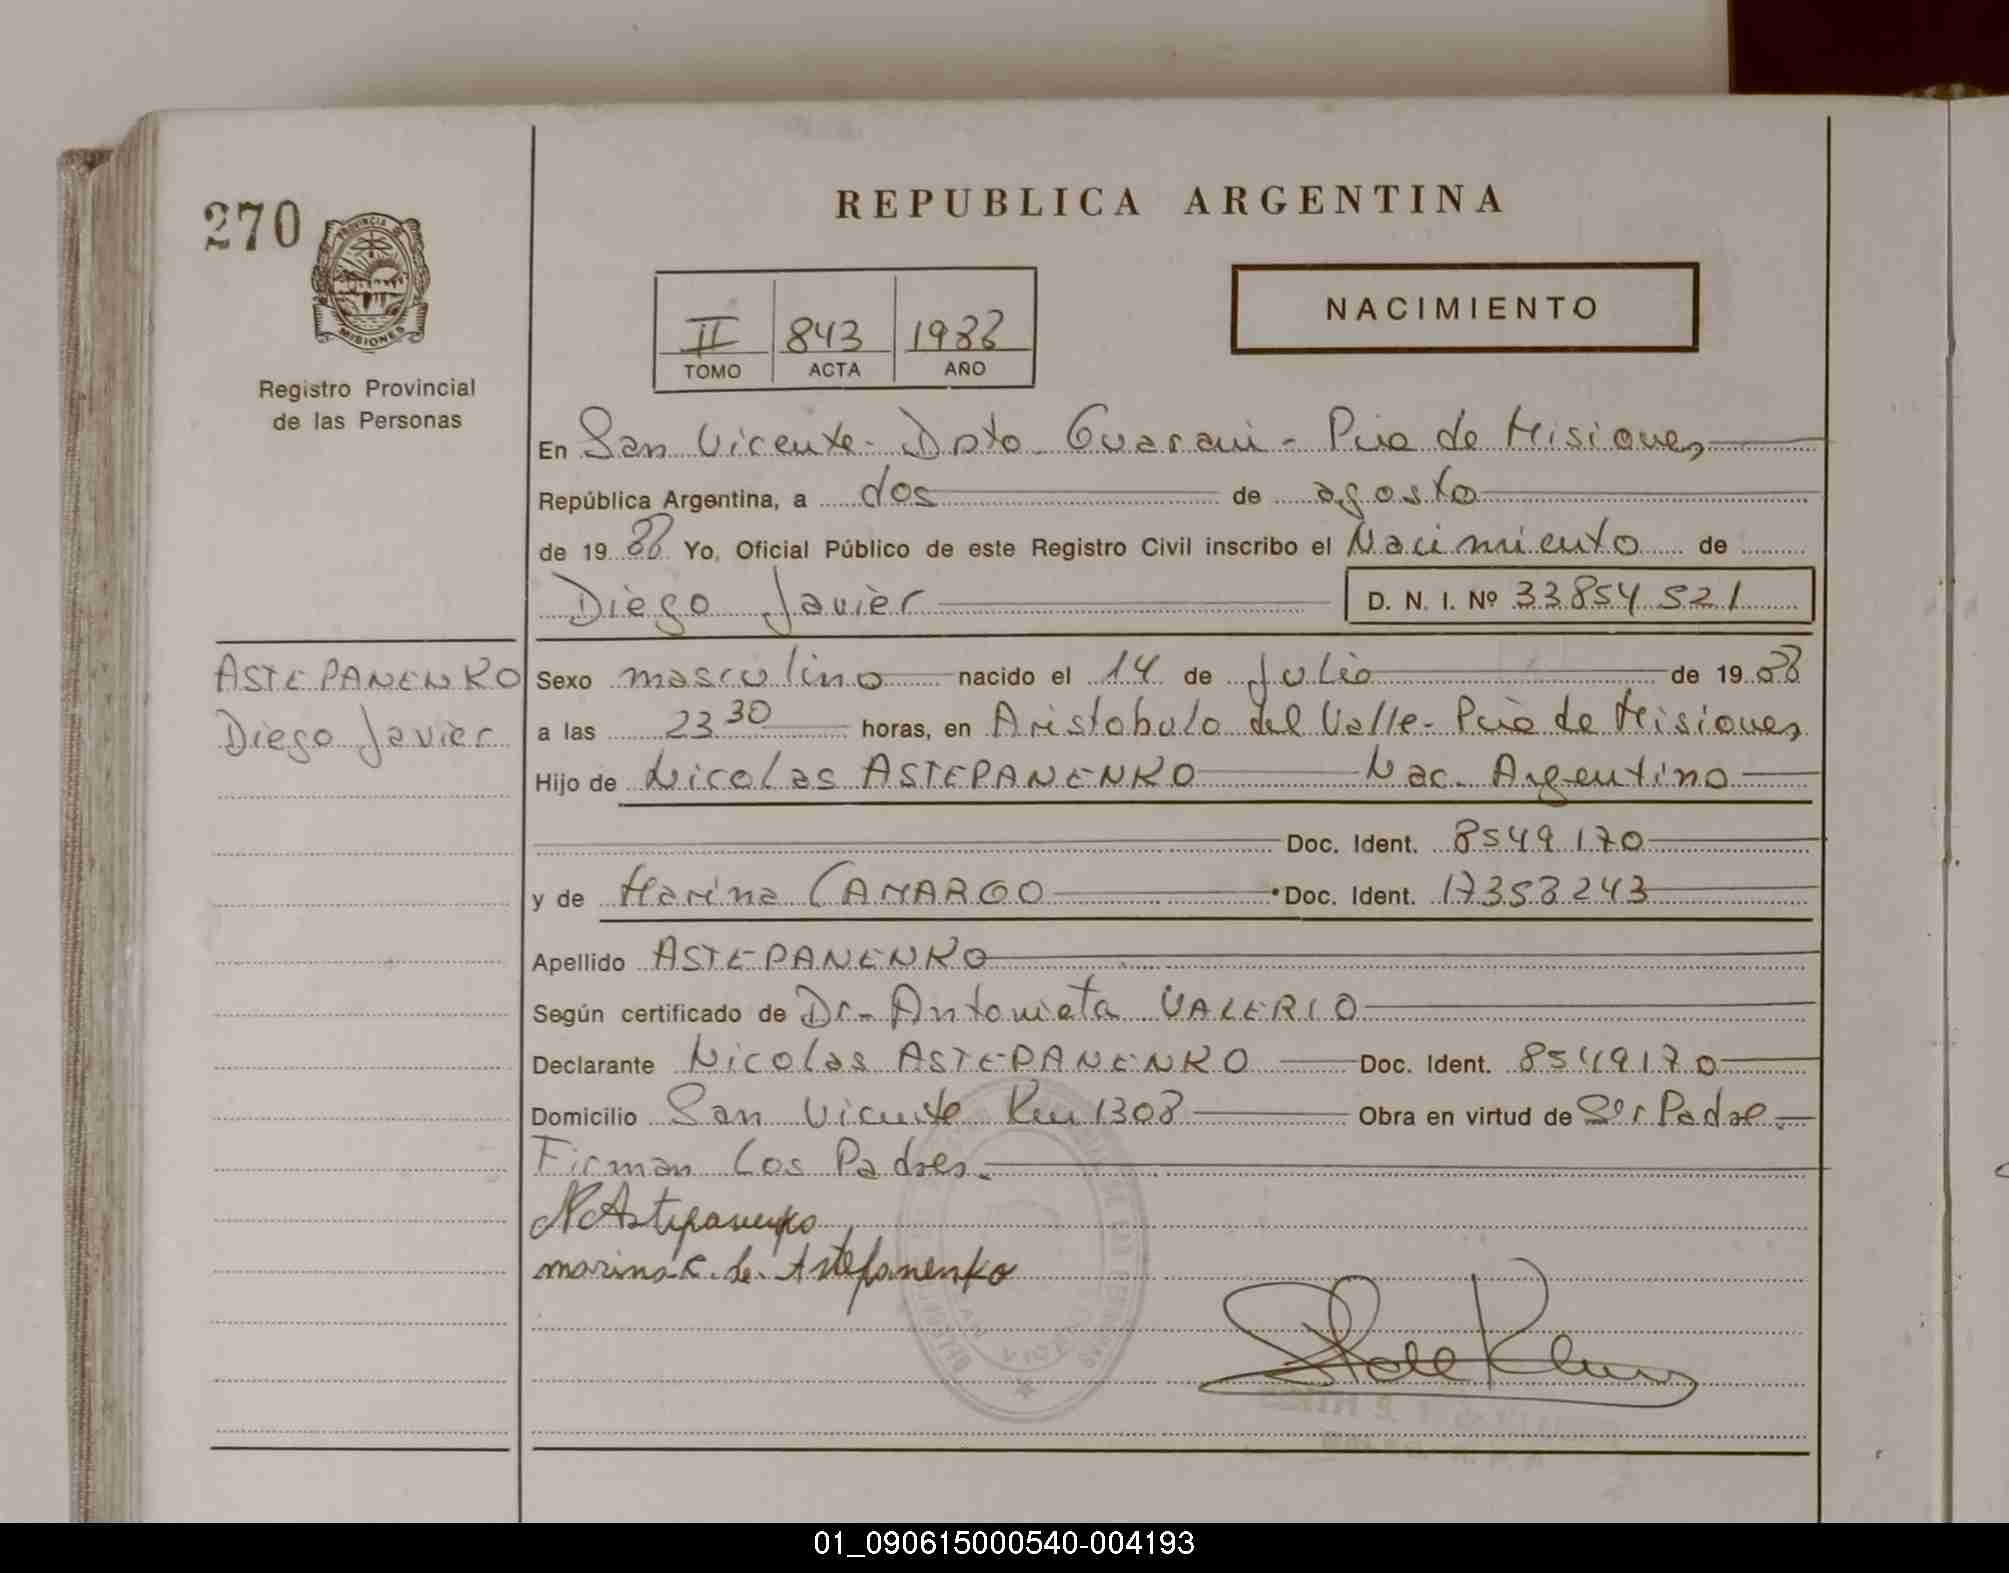 270
PROVINCIA DE
MISIONES
Registro Provincial
de las Personas
REPUBLICA ARGENTINA
II 843 1988
TOMO ACTA AÑO
NACIMIENTO
En San Vicente - Dpto Guarani - Pcia de Misiones
República Argentina, a dos de agosto
de 1988 Yo, Oficial Público de este Registro Civil inscribo el Nacimiento de
Diego Javier D. N. I. Nº 33854521
ASTEPANENKO
Diego Javier
Sexo masculino nacido el 14 de Julio de 1988
a las 23 30 horas, en Aristobulo del Valle - Pcia de Misiones
Hijo de Nicolas ASTEPANENKO Nac. Argentino
Doc. Ident. 8549170
y de Marina CAMARGO Doc. Ident. 17358243
Apellido ASTEPANENKO
Según certificado de Dr.- Antonieta VALERIO
Declarante Nicolas ASTEPANENKO Doc. Ident. 8549170
Domicilio San Vicente Km 1308 Obra en virtud de Ser Padre.-
Firman Los Padres.-
N Astepanenko
marina C. de Astefanenko
01_090615000540-004193